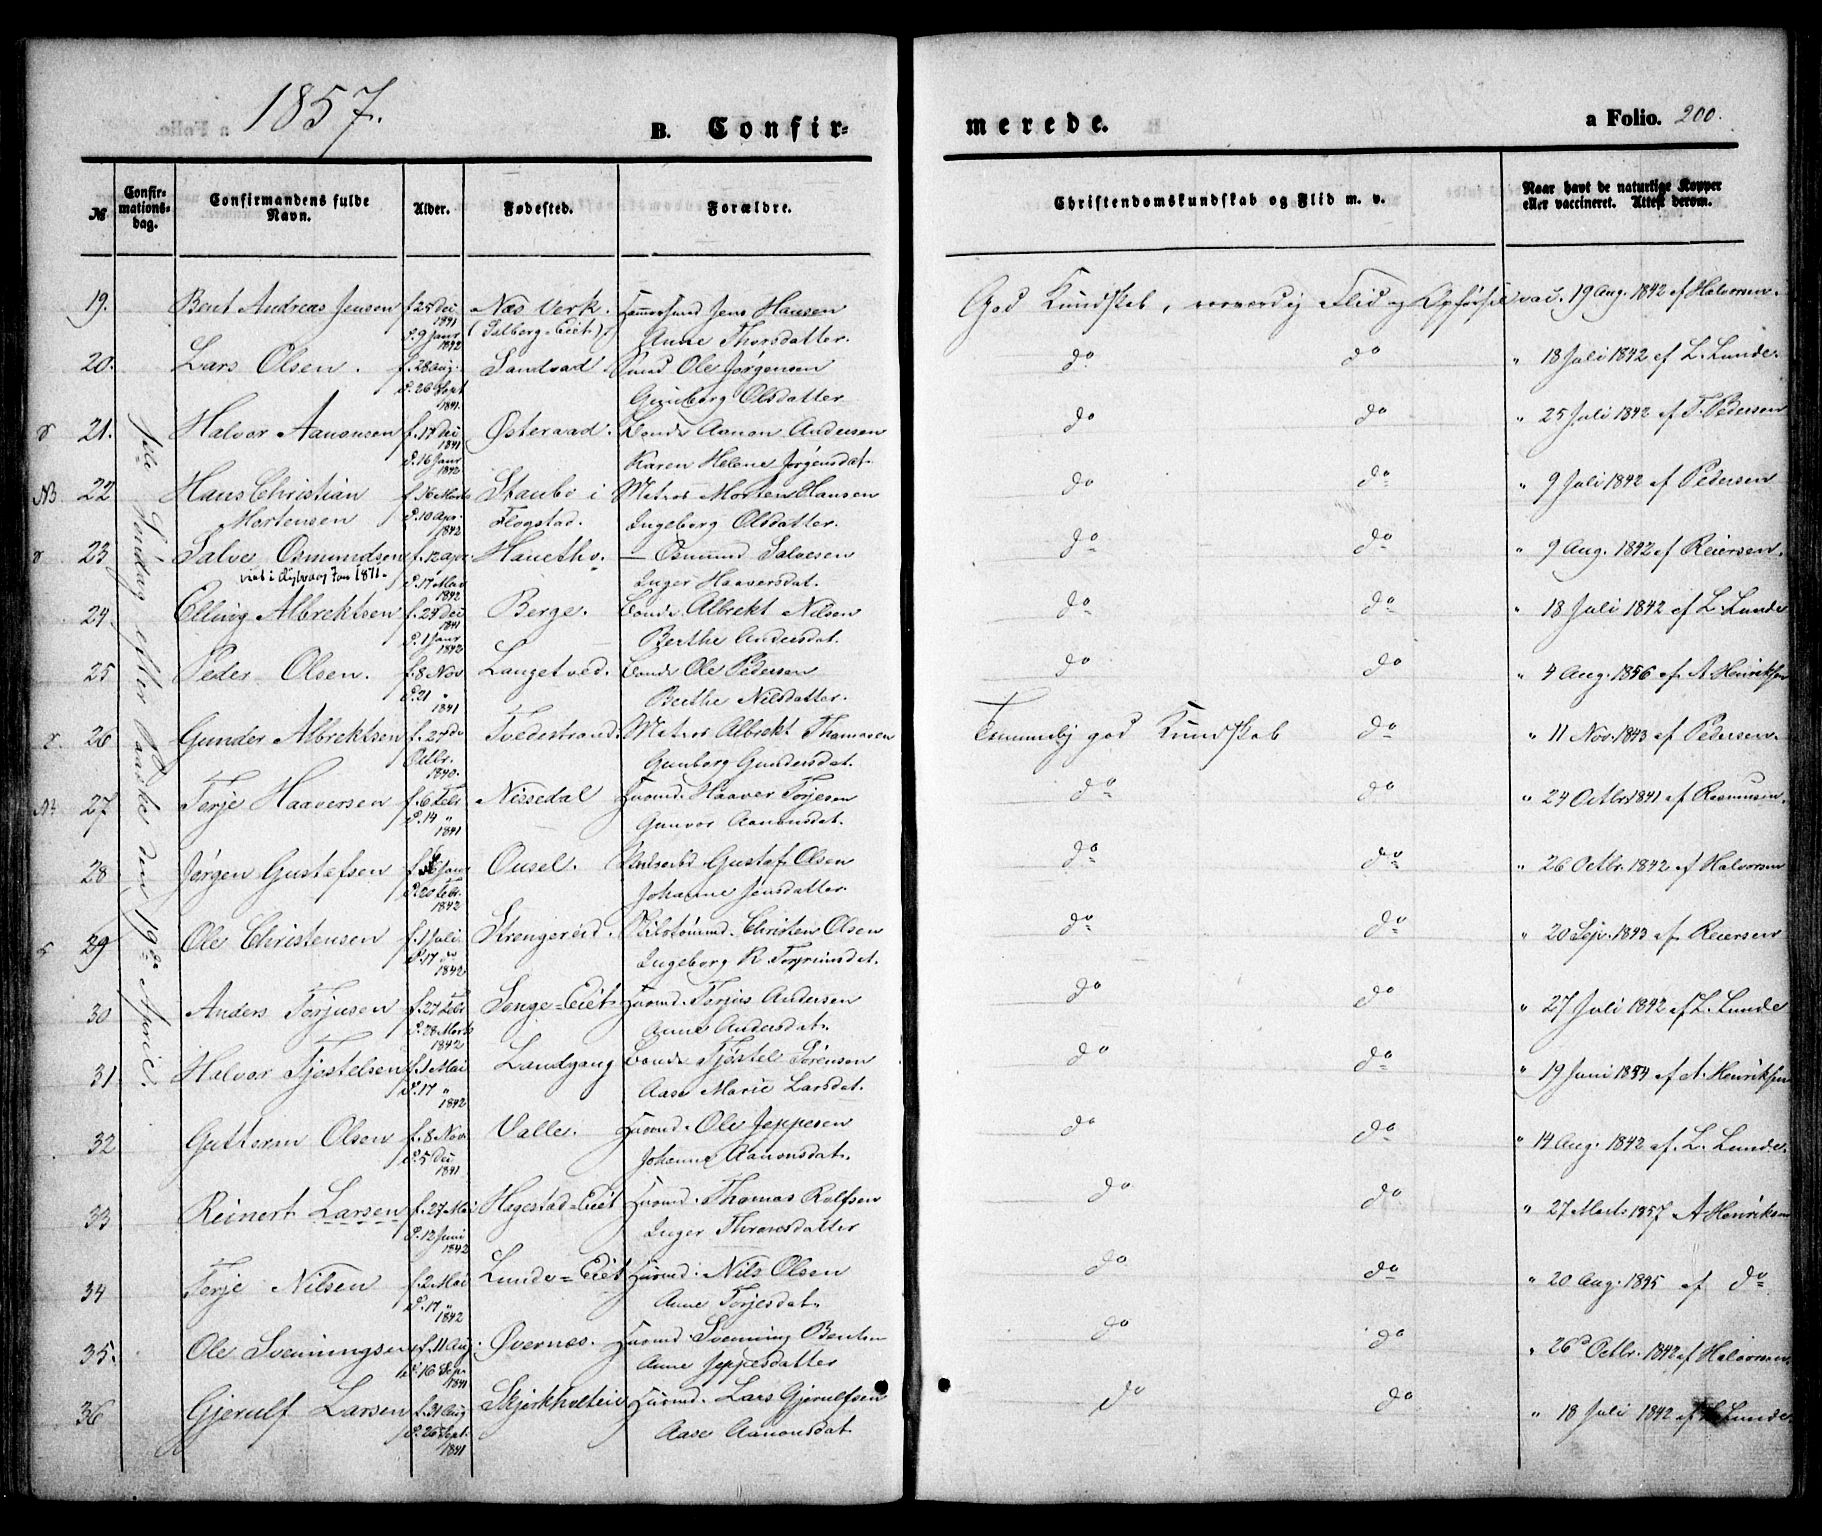 1857.
B. Confir-
merede.
a Folio. 200.
№
Confir-
mations-
dag.
Confirmandens fulde
Navn.
Alder.
Fødested.
Forældre.
Christendomskundskab og Flid m. v.
Naar havt de naturlige Kopper
eller vaccineret. Attest derom.
Søndag efter Paaske den 19de April.
19. Bent Andreas Jensen f. 25 Dec 1841 d. 9 Janr 1842 Næs Verk. Jens Hansen
Anne Thorsdatter.
God Kundskab, Flid og Opførsel vac. 19 Aug. 1842 af Halvorsen.
20. Lars Olsen. f. 28 Aug. d. 26 Sept 1841. Sandvad Ole Jørgensen
Gunborg Olsdatter
do do " 18 Juli 1842 af L. Lunde.
21. Halvor Aanonsen f. 17 Dec 1841 d. 16 Janr 1842 Østeraad. Bonde Aanon Andersen
Karen Helene Jørgensdat.
do do " 25 Juli 1842 af T. Pedersen
NB. 22 Hans Christian f. 16 Marts Staubø i Matros Morten Hansen
Mortensen d. 10 Apr. 1842 Flogstad. Ingeborg Olsdatter.
do do " 9 Juli 1842 af Pedersen
23 Salve Osmundsen f. 12 Apr. d. 17 Mai 1842 — Osmund Salvesen
Jan 1871.
Inger Haaversdat.
do do " 9 Aug. 1842 af Reiersen.
24. Elling Albrektsen f. 24 Dec 1841 d. 1 Janr 1842 Berge. Bonde Albrekt Nilsen
Berthe Andersdat.
do do " 18 Juli 1842 af L. Lunde
25 Peder Olsen. f. 8 Nov d. 21 " 1841 Langetved. Bonde Ole Pedersen
Berthe Nilsdatter.
do do " 4 Aug. 1856 af A Henriksen
26 Gunder Albrektsen f. 27de Octbr. 1840. Tvedestrand. Matros Albrekt Thomasen
Gunborg Gundersdat.
Temmelig god Kundskab do " 11 Nov. 1843 af Pedersen.
27 Terje Haaversen f. 6 Febr d. 14 " 1841 Nissedal Huusmd. Haaver Terjesen
Gunvor Aanonsdat.
do do " 24 Octbr 1841 af Rasmusen.
28 Jørgen Gustafsen f. 6 Janr d. 20 Febr. 1842 Ousel. Gustaf Olsen
Johanne Jensdatter.
do do " 26 Octbr. 1842 af Halvorsen
29 Ole Christensen f. 1 Juli d. 17 do 1842 Strengereid. Christen Olsen
Ingeborg K Torjeunsdat.
do do " 20 Sep. 1843 af Reiersen
30 Anders Torjusen f. 27 Febr d. 28 Marts 1842 Songe-Eiet Huusmd. Torjus Andersen
Anne Andersdat.
do do " 27 Juli 1842 af L. Lunde
31 Halvor Tjøstelsen f. 1 Mai d. 17 " 1842 Landgang Bonde Tjøstel Sørensen
Aase Marie Larsdat.
do do " 19 Juni 1854 af A. Henriksen
32 Guttorm Olsen f. 8 Nov. d. 5 Dec 1841 Valle. Huusmd. Ole Jeppesen
Johanne Aanonsdat.
do do " 14 Aug. 1842 af L. Lunde.
33 Reinert Larsen f. 27 Mai d. 12 Juni 1842 Hagestad-Eiet Huusmd. Thomas Rolfsen
Inger Thronsdatter
do do " 27 Marts 1857 A Henriksen
34 Terje Nilsen f. 2 Mai d. 17 " 1842 Lunde-Eiet Huusmd. Nils Olsen
Anne Torjesdat.
do do " 20 Aug. 1845 af do
35. Ole Sveningsen f. 11 Aug. d. 16 Sepr 1841 Øvernes. Huusmd. Svenning Bentsen
Anne Jeppesdatter
do do " 26 Octbr. 1842 af Halvorsen.
36 Gjerulf Larsen f. 31 Aug d. 26 Sept. 1841 Skjerkholteie Huusmd. Lars Gjerulfsen
Aase Aanonsdat.
do do " 18 Juli 1842 af L. Lunde.